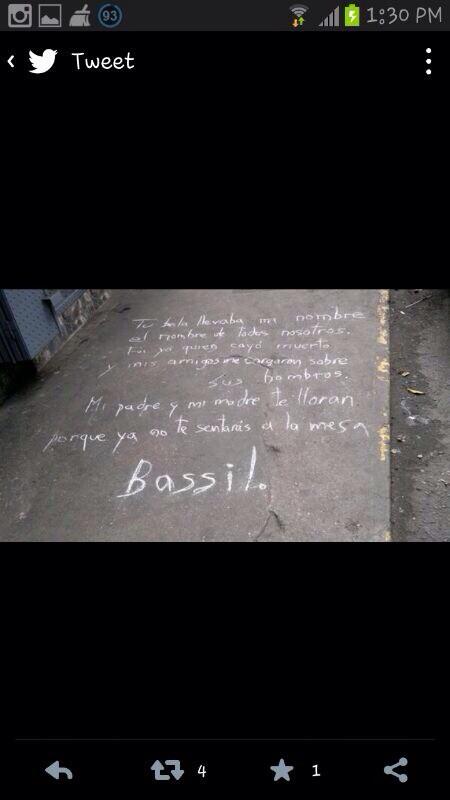 93
1:30 PM
Tweet
Tu bala llevaba mi nombre
el nombre de todos nosotros.
Fui yo quien cayó muerto
y mis amigos me cargaron sobre
sus hombros.
Mi padre y mi madre te lloran
porque ya no te sentarás a la mesa
Bassil.
4
1